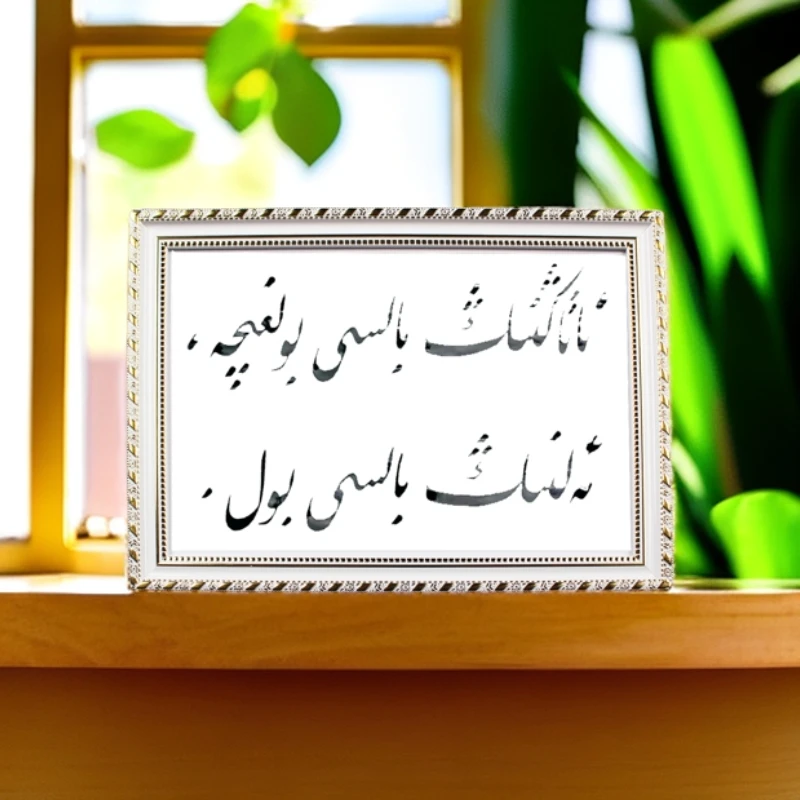 ئاتاڭنىڭ بالىسى بولغىچە،
ئەلنىڭ بالىسى بول.